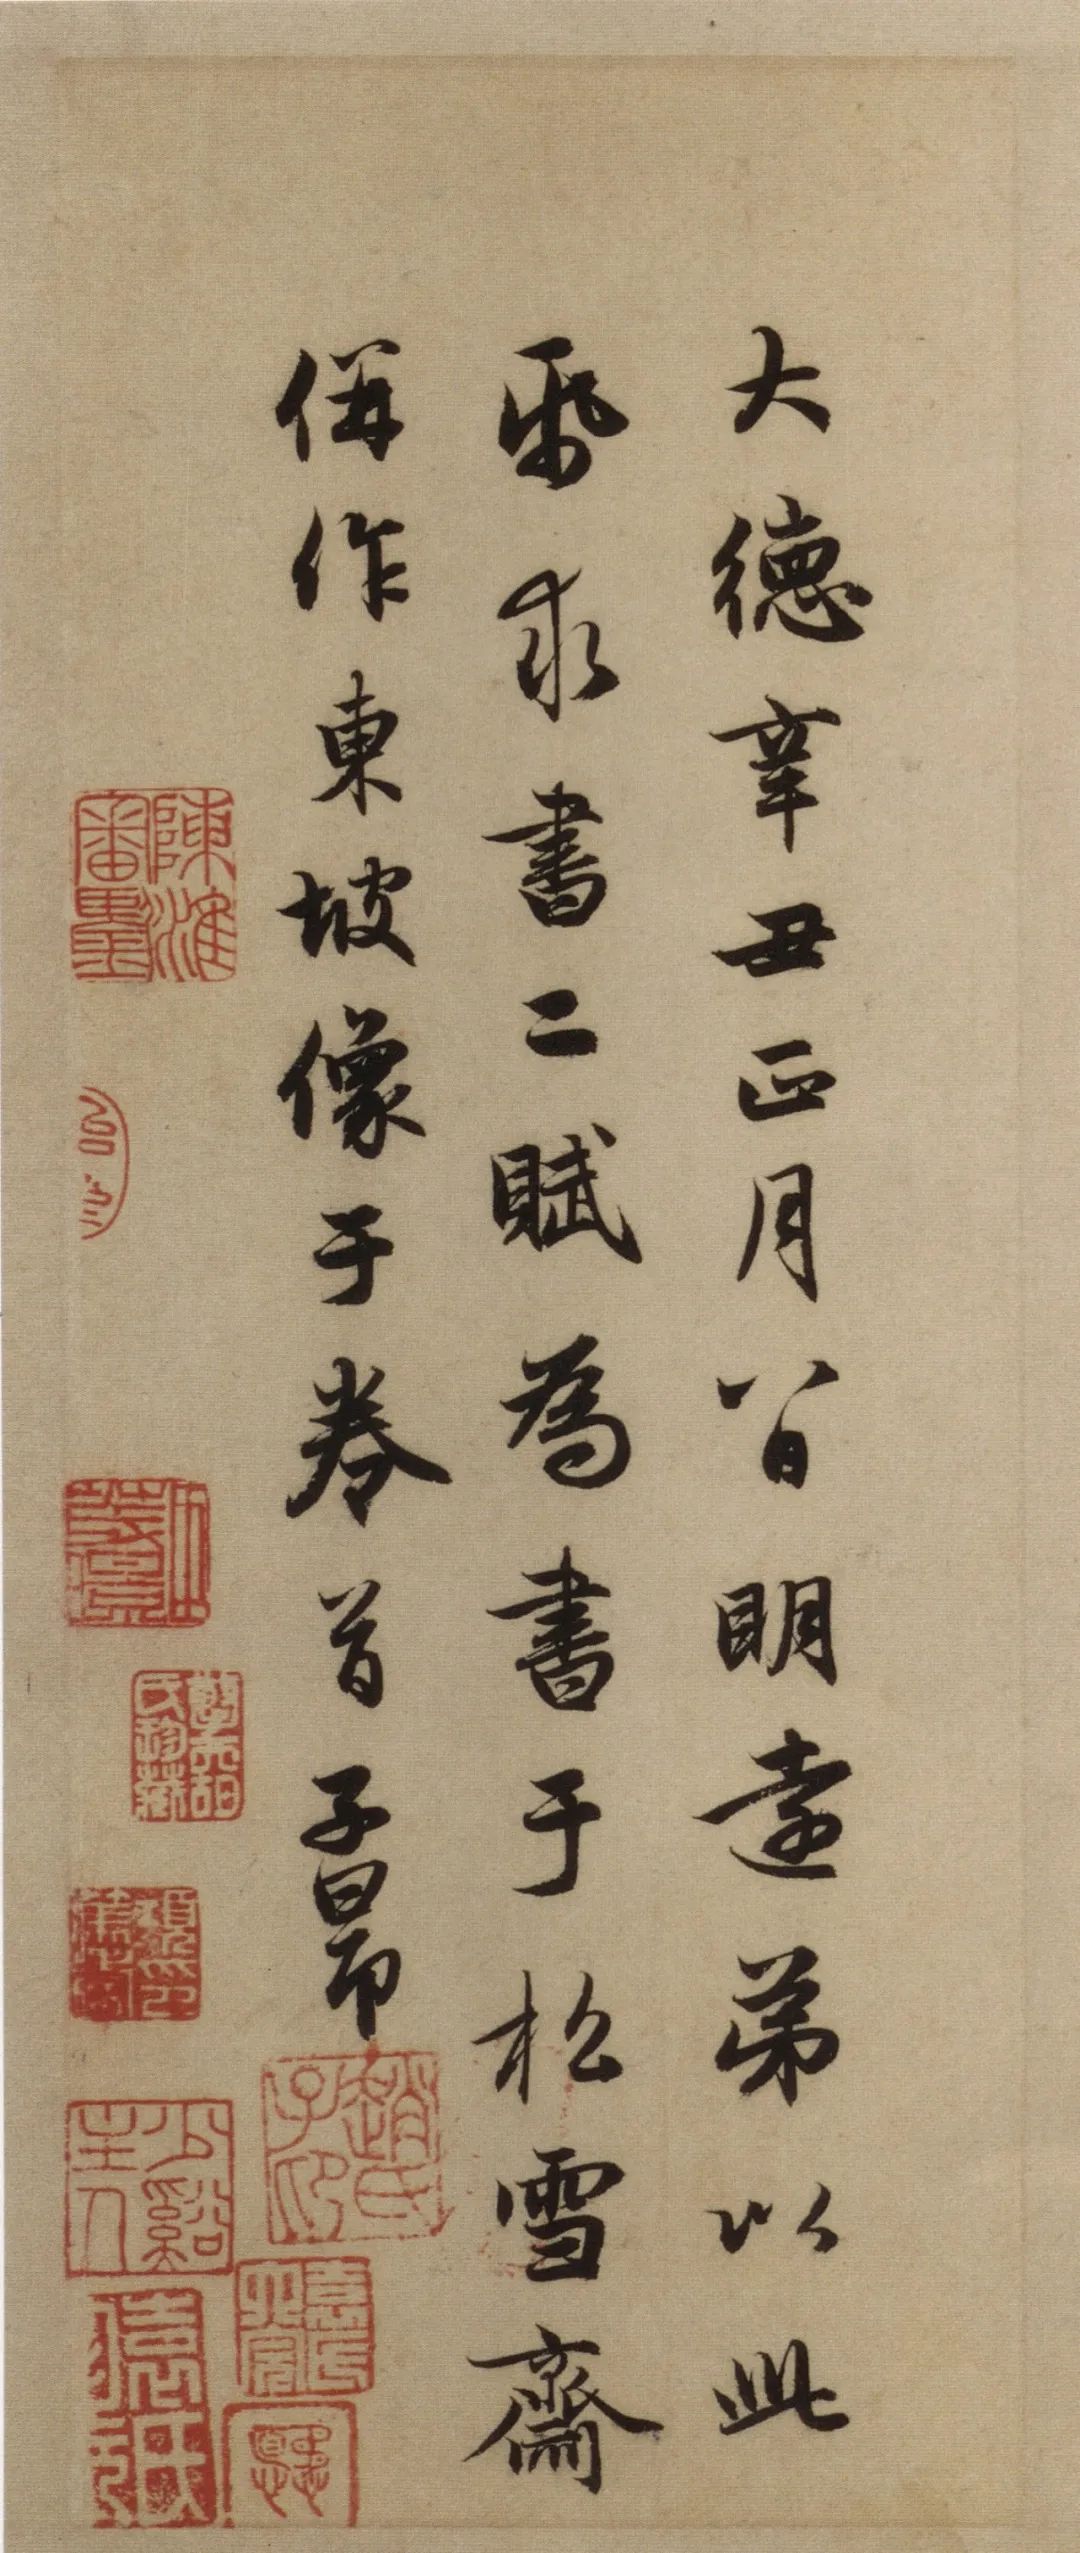 大德辛丑正月八日明遠弟以此
紙求書二賦為書于松雪齋
併作東坡像于卷首子昂
陳淮審墨
趙氏子昂
少谿主人